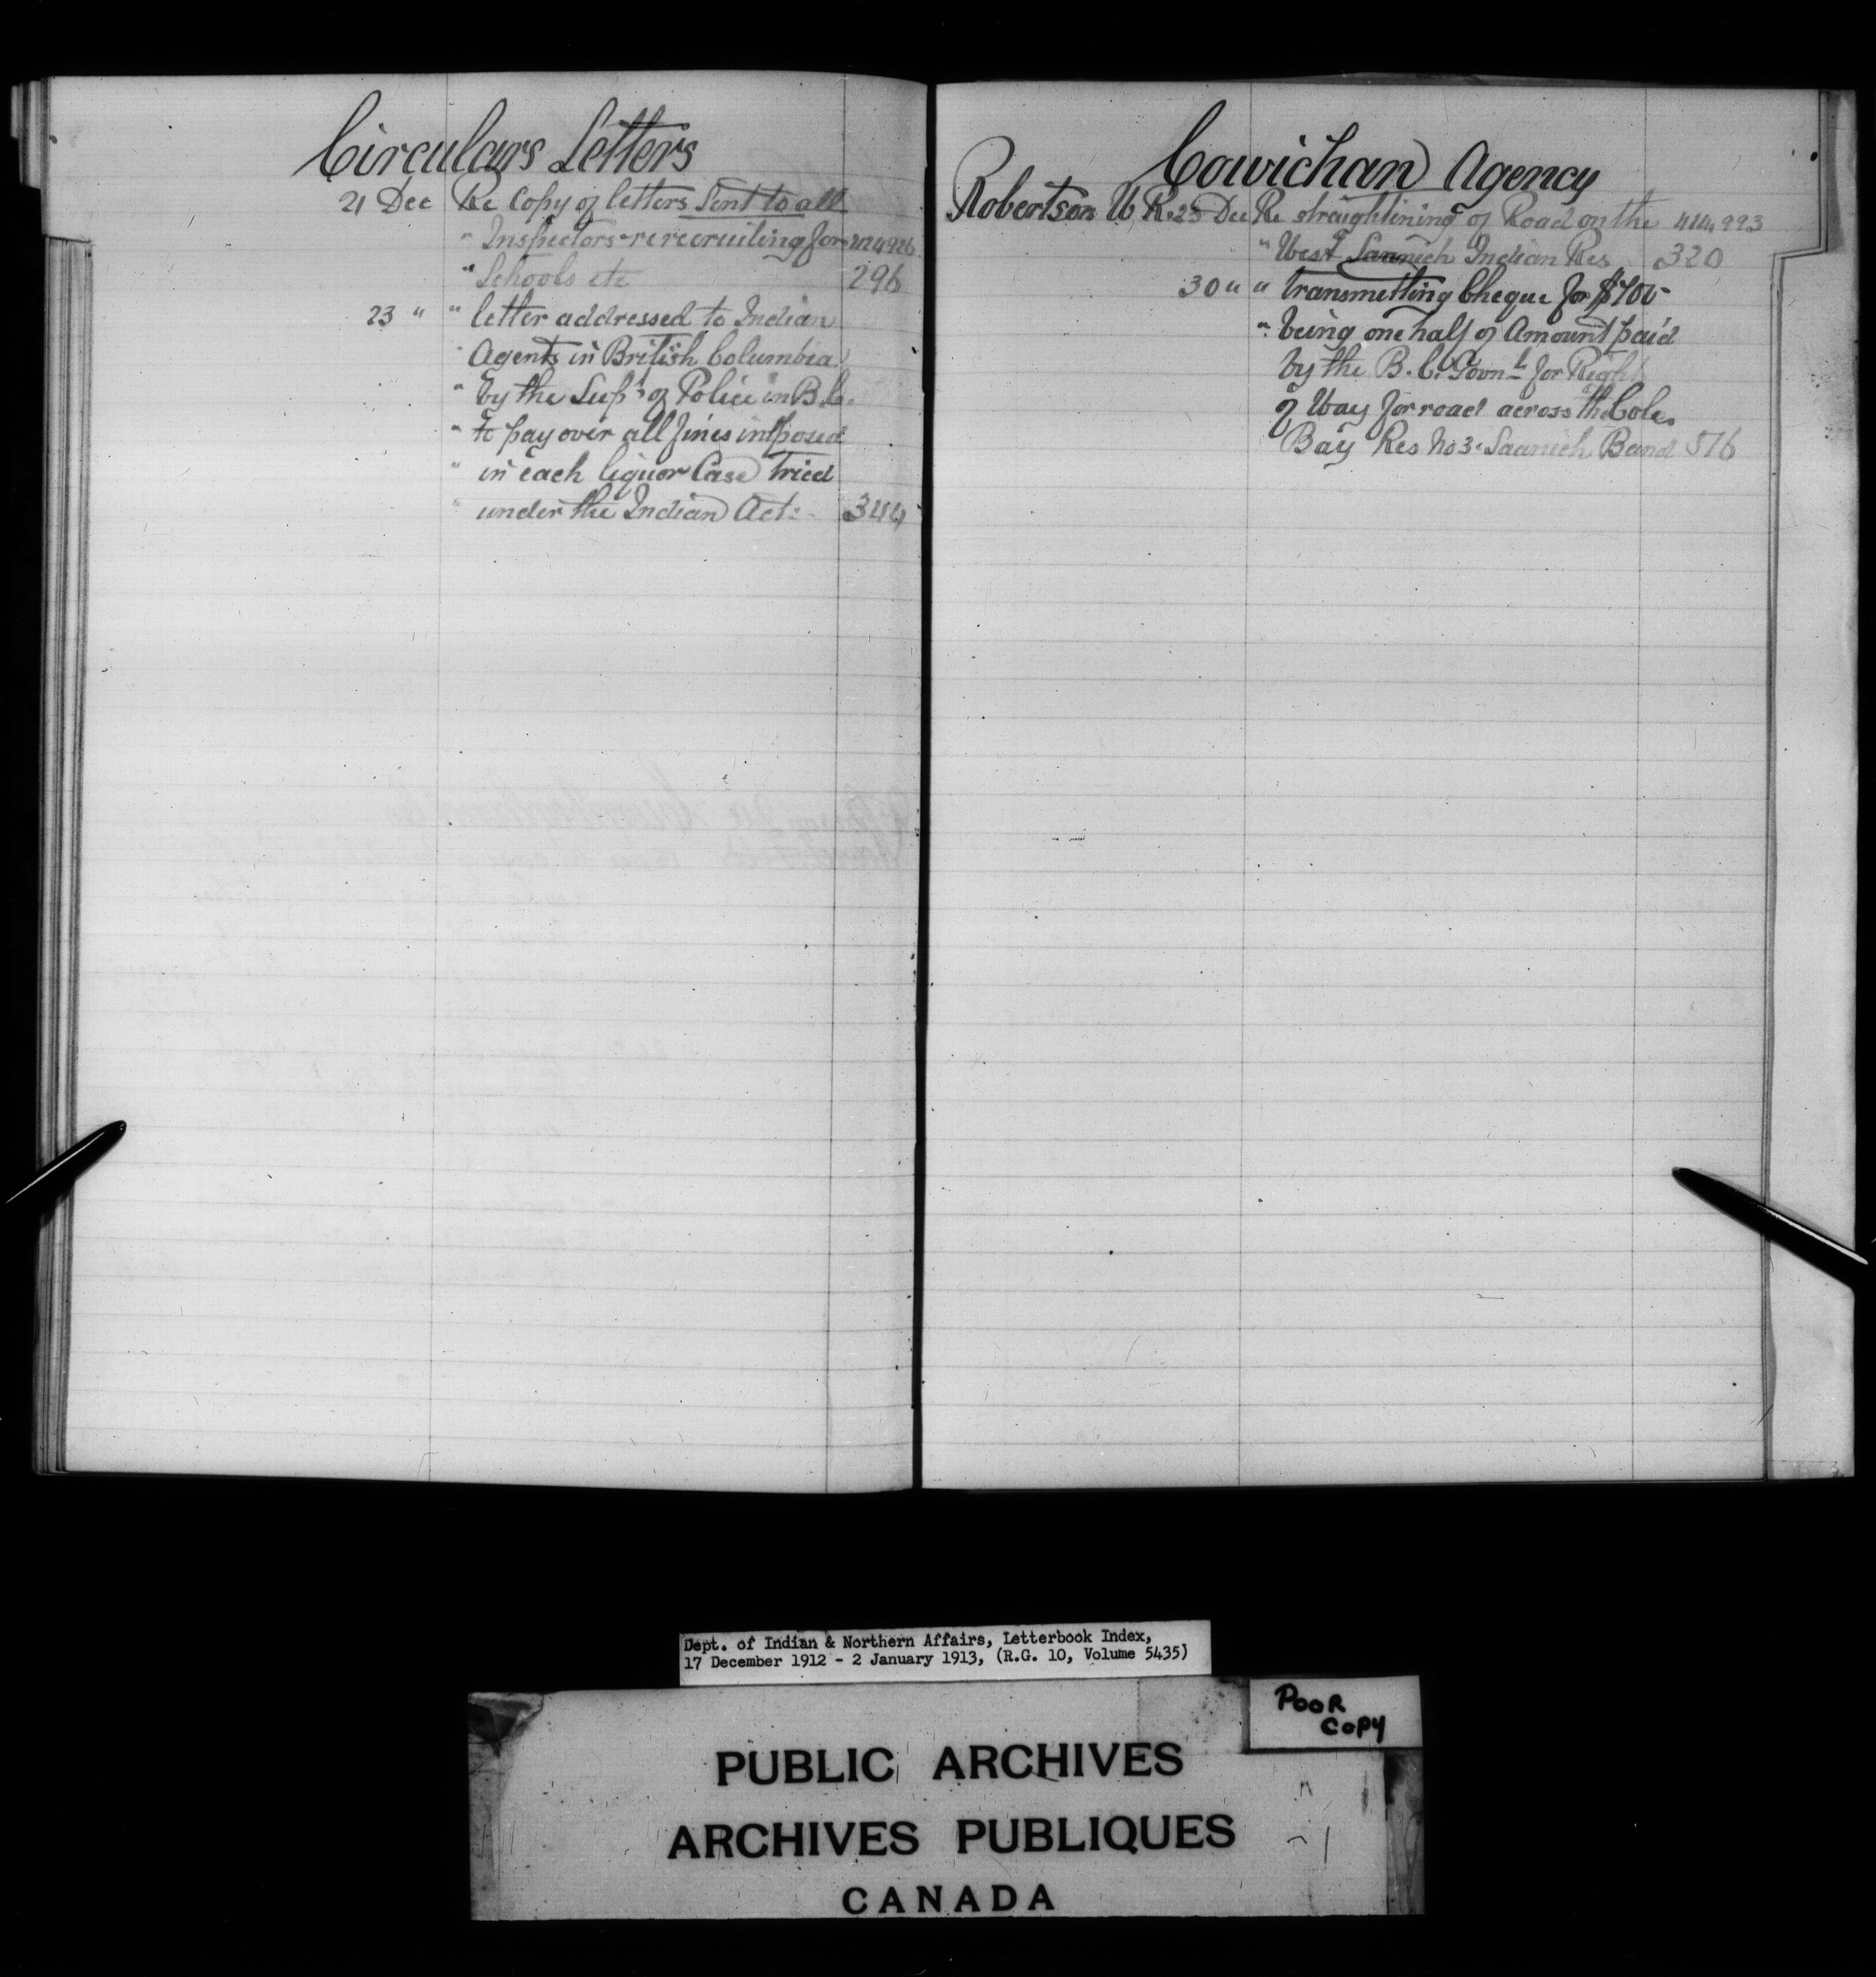 Circulars Letters
21 Dec Re Copy of letters Sent to all
" Inspectors re recruiting for 424926
" Schools etc 296
23 " " letter addressed to Indian
" Agents in British Columbia
" by the Supt of Police in B.C.
" to pay over all fines imposed
" in each liquor Case Tried
" under the Indian Act - 344
Cowichan Agency
Robertson W. R. 23 Dec Re straightining of Road on the 424,993
" West Saanich Indian Res 320
30 " " transmitting Cheque for $700
" being one half of Amount paid
by the B.C. Govnt for Right
of Way for road across the Coles
Bay Res No 3. Saanich Band 516
Dept. of Indian & Northern Affairs, Letterbook Index,
17 December 1912 - 2 January 1913, (R.G. 10, Volume 5435)
POOR
COPY
PUBLIC ARCHIVES
ARCHIVES PUBLIQUES
CANADA